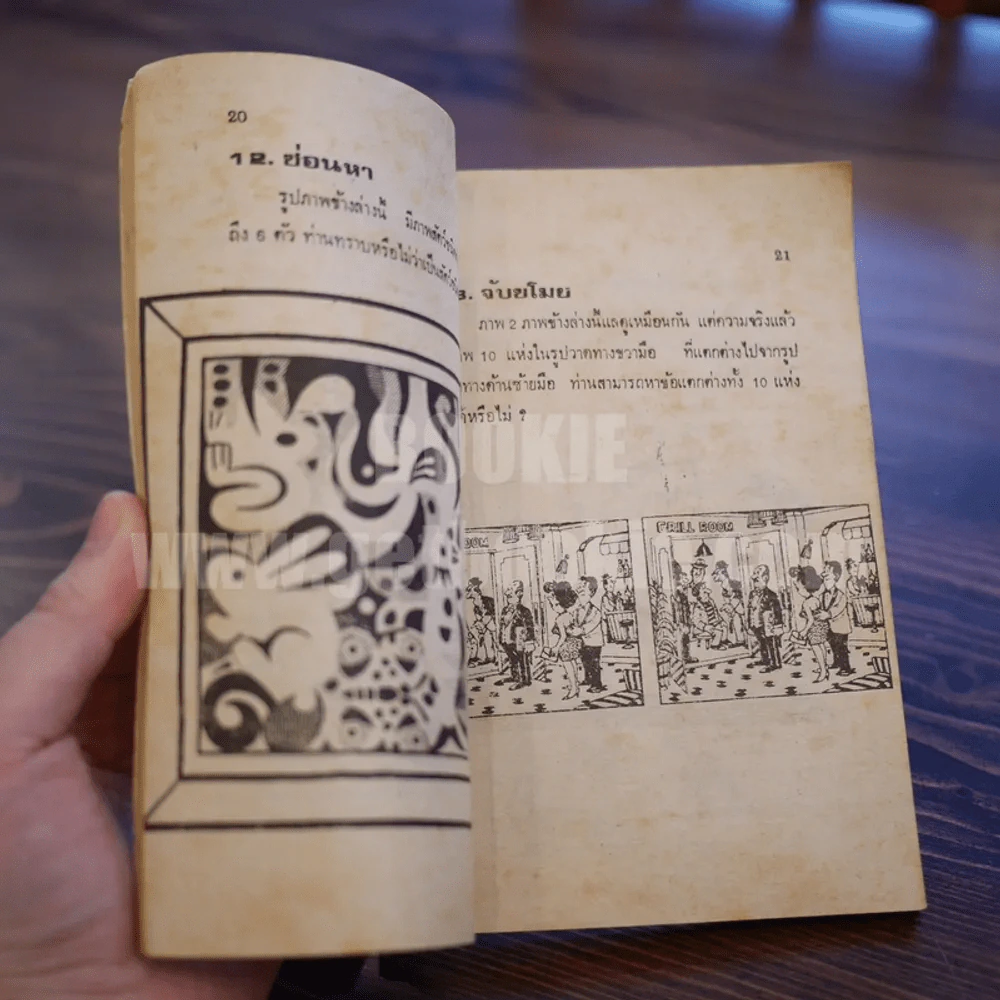 20
12. ซ่อนหา
รูปภาพข้างล่างนี้ มีภาพสัตว์
ถึง 6 ตัว ท่านทราบหรือไม่ว่าเป็นสัตว์
21
3. จับขโมย
ภาพ 2 ภาพข้างล่างนี้แลดูเหมือนกัน แต่ความจริงแล้ว
10 แห่งในรูปวาดทางขวามือ ที่แตกต่างไปจากรูป
ทางด้านซ้ายมือ ท่านสามารถหาข้อแตกต่างทั้ง 10 แห่ง
หรือไม่ ?
OOM
PRILL ROOM
BOOKIE